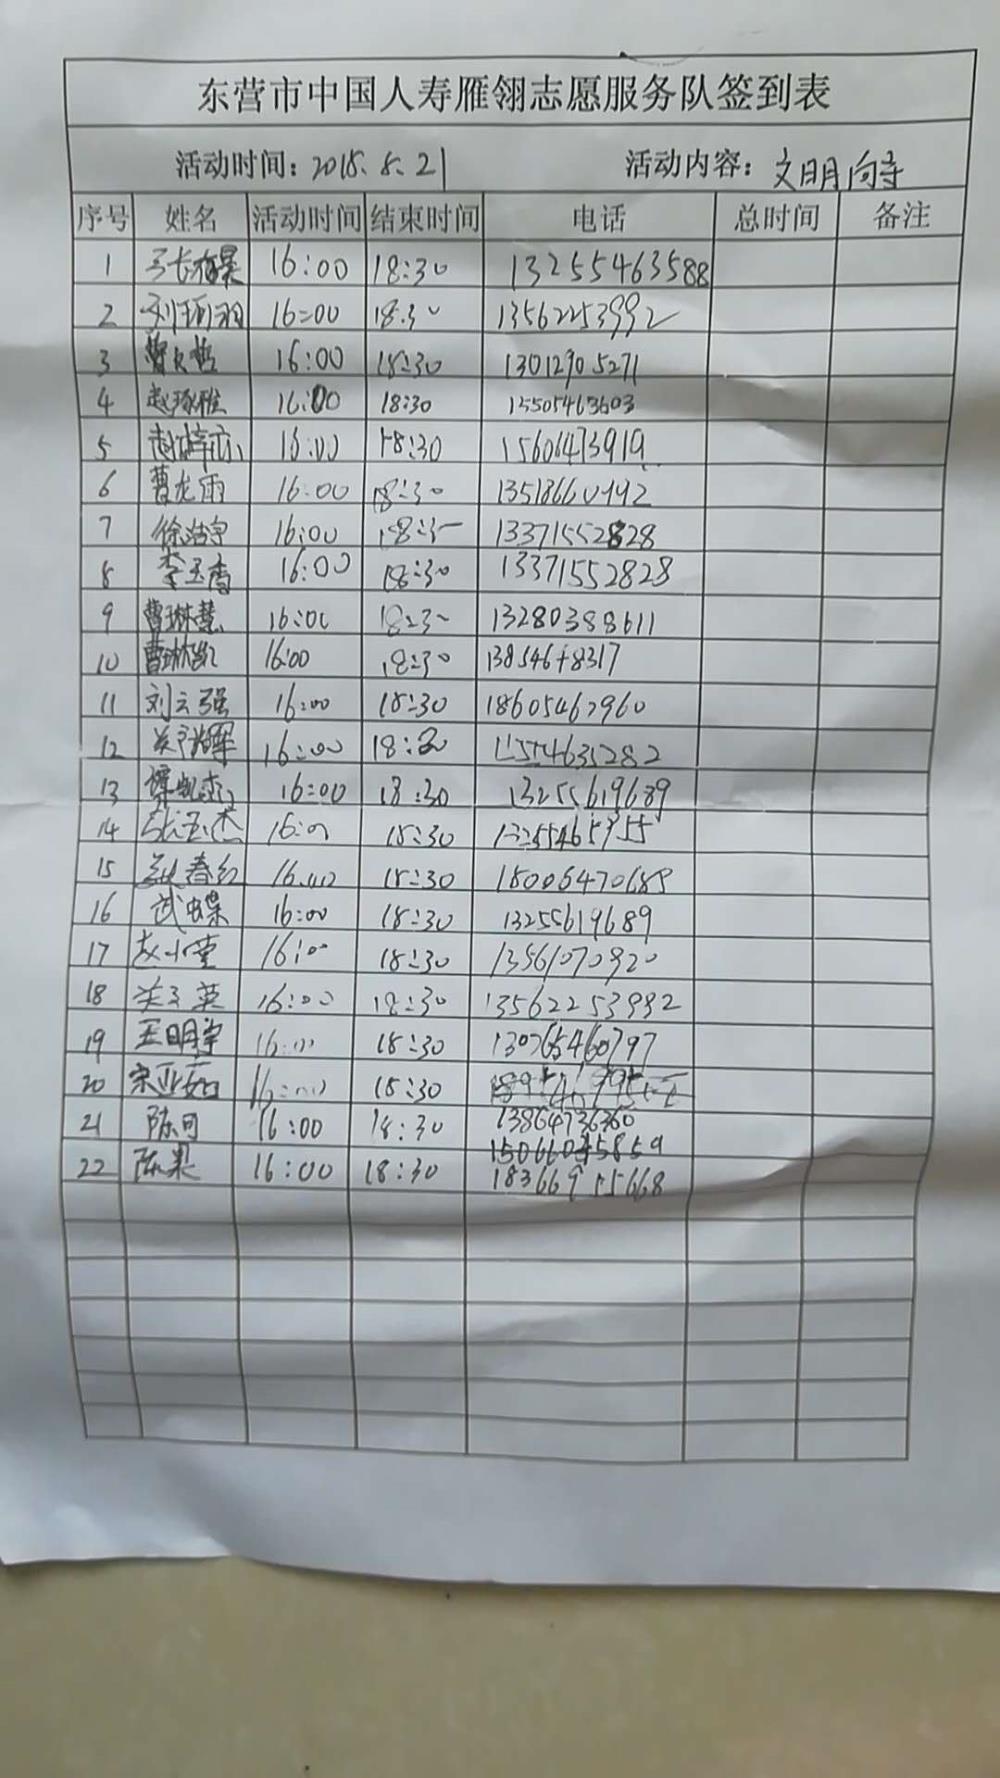 东营市中国人寿雁翎志愿服务队签到表
活动时间：2018.8.21 活动内容：文明向导
序号 姓名 活动时间 结束时间 电话 总时间 备注
1 16:00 18:30 13255463588
2 刘 羽 16:00 18:30 13562253992
3 曹 哲 16:00 18:30 13012905271
4 赵琢雅 16:00 18:30 15505463603
5 赵梓 16:00 18:30 15606473919
6 曹龙雨 16:00 18:30
7 徐浩宇 16:00 18:30 13371552828
8 李玉香 16:00 18:30 13371552828
9 曹琳慧 16:00 18:30 13280388611
10 曹琳凯 16:00 18:30
11 刘云强 16:00 18:30
12 16:00 18:30
13 16:00 18:30 13255619689
14 张玉杰 16:00 18:30
15 春红 16:00 18:30
16 武蝶 16:00 18:30 13255619689
17 赵小莹 16:00 18:30
18 关玉英 16:00 18:30
19 王明宇 16:00 18:30
20 宋亚茹 16:00 18:30
21 陈可 16:00 18:30 13864736360
22 陈果 16:00 18:30